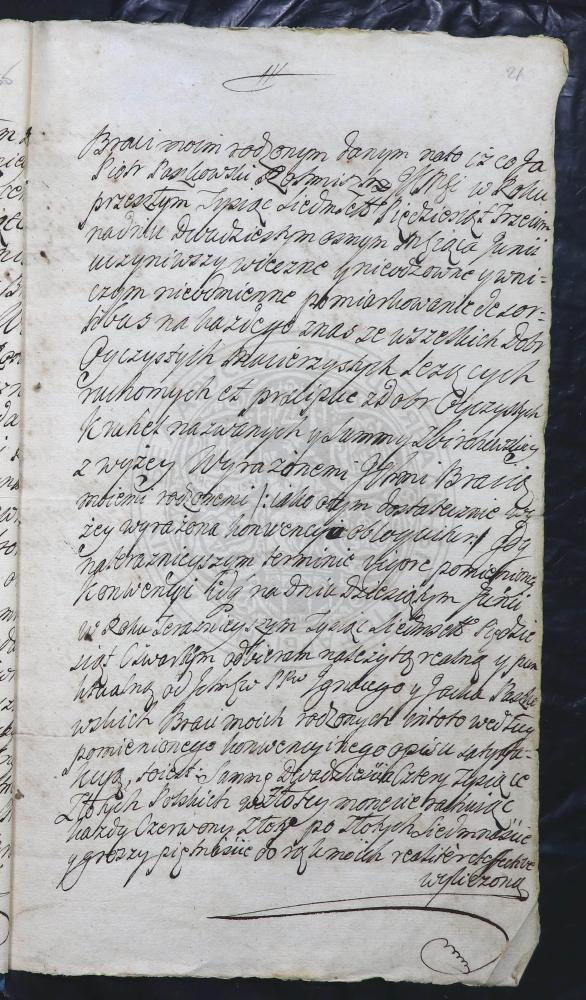 21
Braci moim rodzonym danym na to iż co Ja
Piotr Paszkowski
przeszłym Tysiąc Siedmset Pięcdziesiąt Trzecim
na dniu dwudziestym osmym Msca Junii
uczyniwszy wieczne y nieodzowne y wni-
czym nieodmienne pomiarkowanie de sor-
tibus na każdego z nas ze wszelkich Dobr
Oyczystych Macierzystych Leżących
ruchomych et praecipue z dobr Oyczystych
nazwanych y Summy
z wyżey Wyrażonemi Ichmi Bracią
moiemi rodzonemi /: iako o tym dostatecznie wy-
żey wyrażona konwencya obloquitur :/ Gdy
na teraznieyszym terminie vigore pomienioney
Konwencyi na dniu dziesiątym Junii
w Roku Teraznieyszym Tysiąc Siedmset Pięcdzie
siąt Czwartym odbieram należytą realną y pun
ktualną od Ichmciow PPow Ignacego y Jacka Paszko
wskich Braci moich rodzonych in toto według
pomienionego konwencyinego opisu satysfa-
kcyą, to iest Summę Dwadzieścia Cztery Tysiące
Złotych Polskich w złotey monecie rachuiąc
każdy Czerwony Złoty po złotych Siedmnaście
y groszy piętnaście do rąk moich realiter et effective
wyliczoną